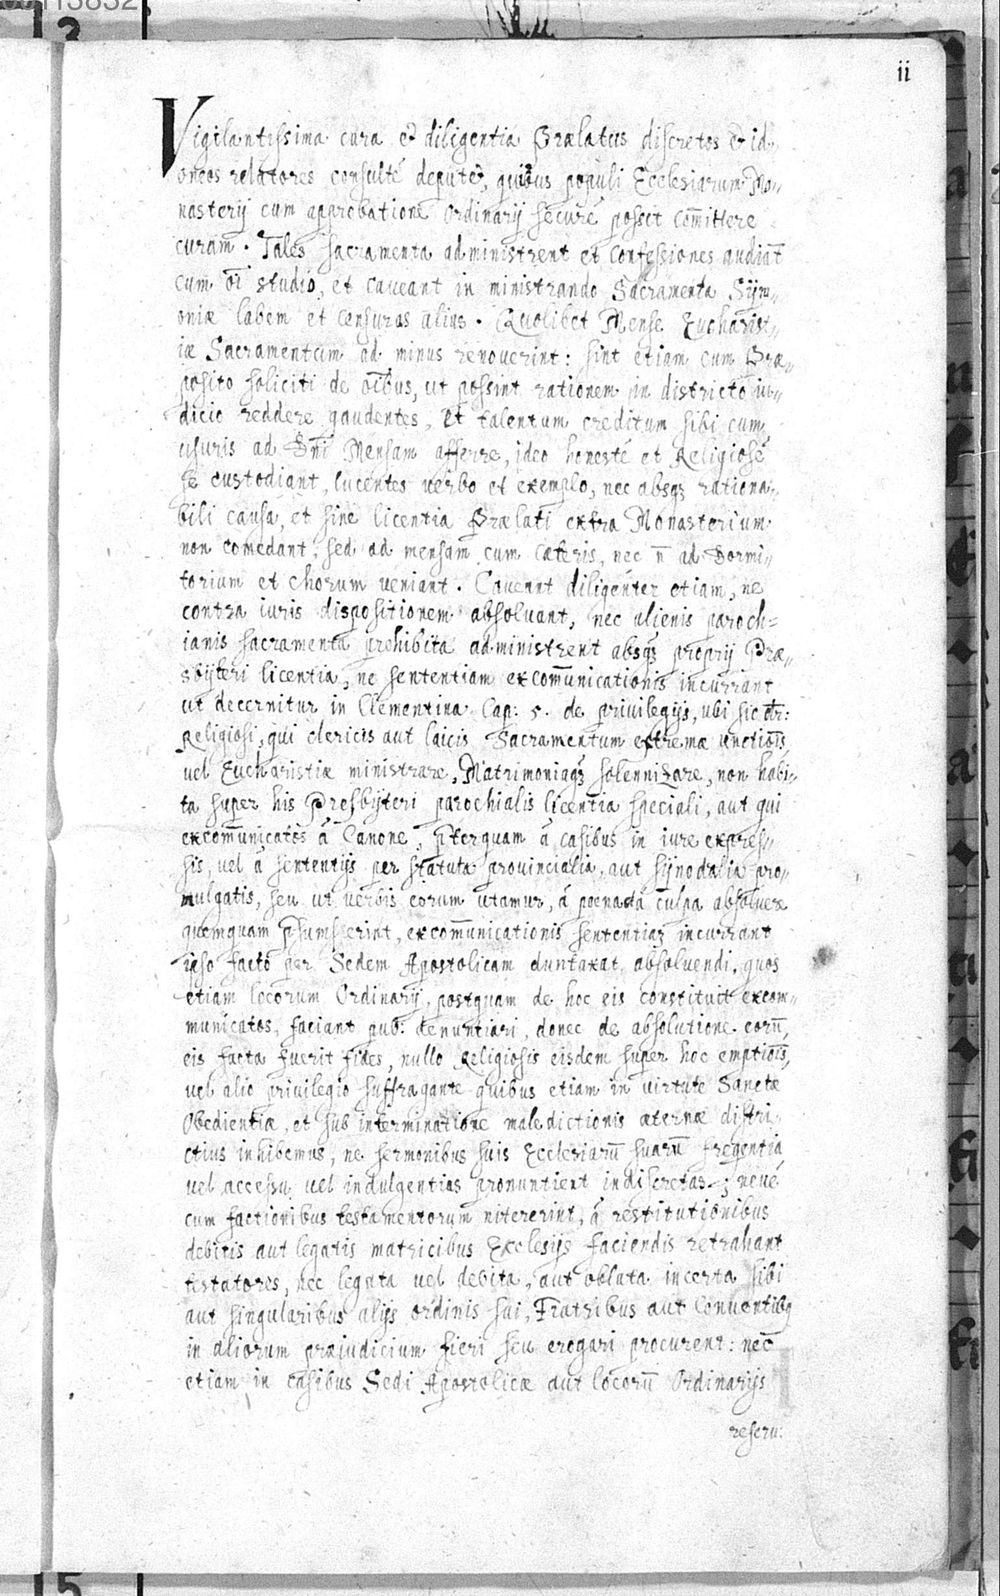 ii
Vigilantissima cura et diligentia Prælatus discretos et id-
oneos relatores consulté deputet, quibus populi Ecclesiarum Mo-
nasterij cum approbatione Ordinarij securé possit com̄ittere
curam. Tales Sacramenta administrent et Confessiones audiāt
cum oī studio, et caveant in ministrando Sacramenta Sym-
oniæ labem et censuras alias. Quolibet Mense Eucharist-
iæ Sacramentum ad minus renoverint: sint etiam cum Præ-
posito soliciti de oībus, ut possint rationem in districto iu-
dicio reddere gaudentes, et talentum creditum sibi cum
usuris ad Dn̄i Mensam afferre, ideo honesté et Religiosé
se custodiant, lucentes verbo et exemplo, nec absqȝ rationa-
bili causa, et sine licentia Prælati extra Monasterium
non comedant, sed ad mensam cum cæteris, nec n̄ ad Dormi-
torium et chorum veniant. Caveant diligenter etiam, ne
contra iuris dispositionem absoluant, nec alienis paroch=
ianis sacramenta prohibita administrent absqȝ proprij Præ-
sbyteri licentia, ne sententiam excom̄unicationis incurrant
ut decernitur in Clementina Cap: 5. de privilegijs, ubi sic dr:
Religiosi, qui clericis aut laicis Sacramentum extremæ unctiōis,
vel Eucharistiæ ministrare, Matrimoniaqȝ solennizare, non habi-
ta super his Presbyteri parochialis licentia speciali, aut qui
excom̄unicatos á Canone, p̄terquam á casibus in iure expres-
sis, vel á sententijs per statuta provincialia, aut synodalia pro-
mulgatis, seu ut verbis eorum utamur, á poena et á culpa absoluere
quemquam p̄sumserint, excom̄unicationis sententiaȝ incurrant
ipso facto per Sedem Apostolicam duntaxat absoluendi, quos
etiam locorum Ordinarij, postquam de hoc eis constituit excom-
municatos, faciant pub: denuntiari, donec de absolutione eorū,
eis facta fuerit fides, nullo Religiosis eisdem super hoc emptiōis,
vel alio privilegio suffragante quibus etiam in virtute Sanctæ
Obedientiæ, et sub interminatione maledictionis æternæ distri-
ctius inhibemus, ne sermonibus suis Ecclesiarū suarū freqentia
vel accessu vel indulgentias pronuntient indiscretas; nevé
cum factionibus testamentorum nitererint, á restitutionibus
debitis aut legatis matricibus Ecclesijs faciendis retrahant
testatores, nec legata vel debita, aut oblata incerta sibi
aut singularibus alijs ordinis sui, Fratribus aut Conventibȝ
in aliorum præiudicium fieri seu erogari procurent: nec
etiam in casibus Sedi Apostolicæ aut locorū Ordinarijs
reseru: